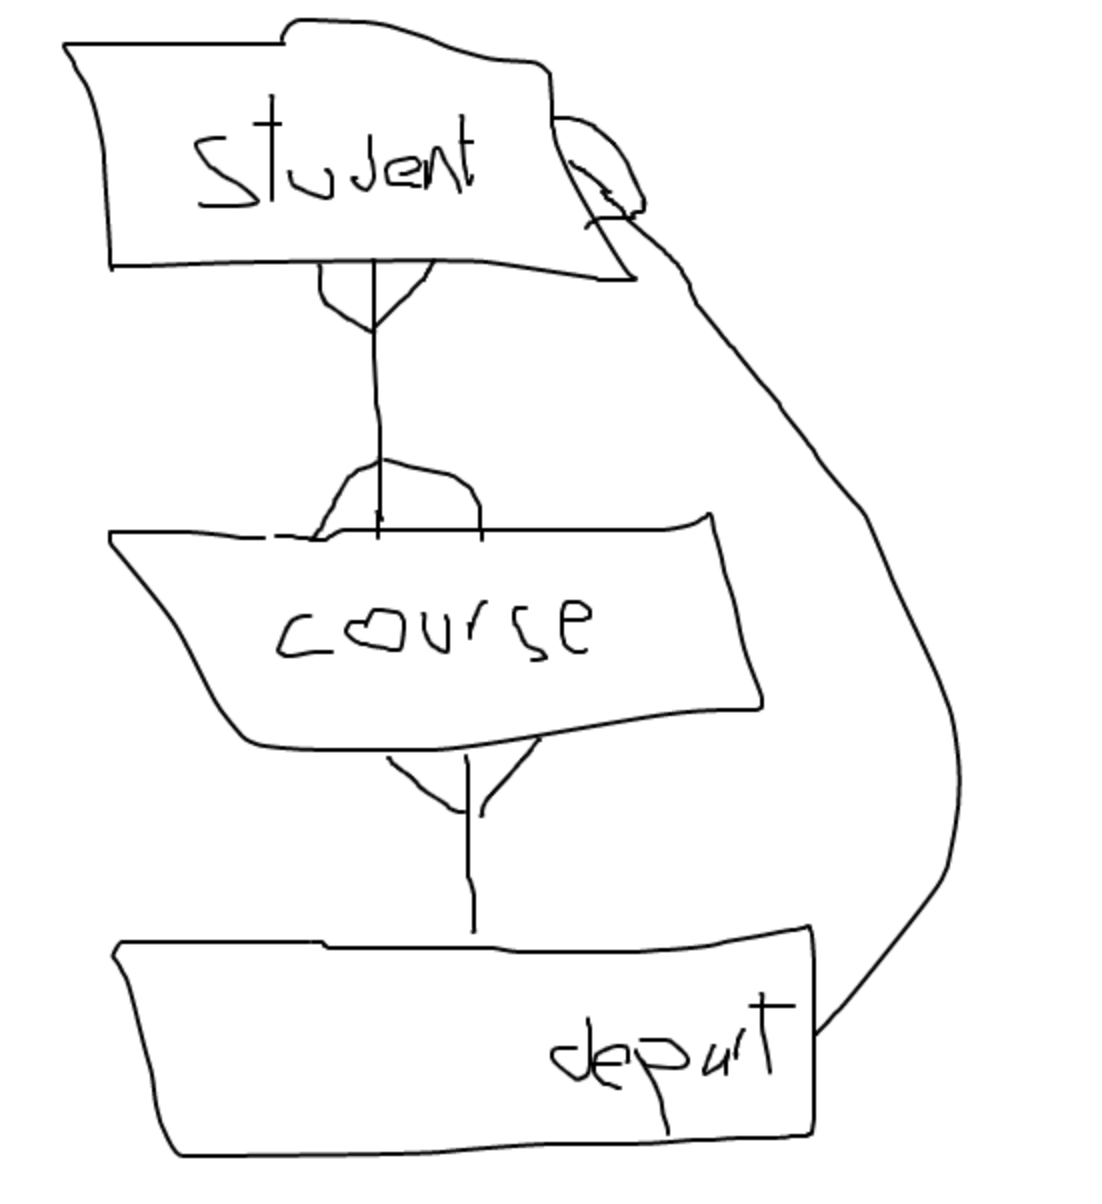 student
course
depart